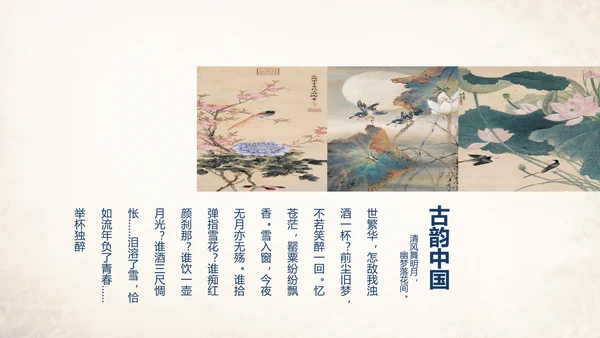 古韵中国
清风舞明月，
幽梦落花间。
世繁华，怎敌我浊
酒一杯？前尘旧梦，
不若笑醉一回。忆
苍茫，罂粟纷纷飘
香。雪入窗，今夜
无月亦无殇。谁拾
弹指雪花？谁痴红
颜刹那？谁饮一壶
月光？谁酒三尺惆
怅……泪溶了雪，恰
如流年负了青春……
举杯独醉